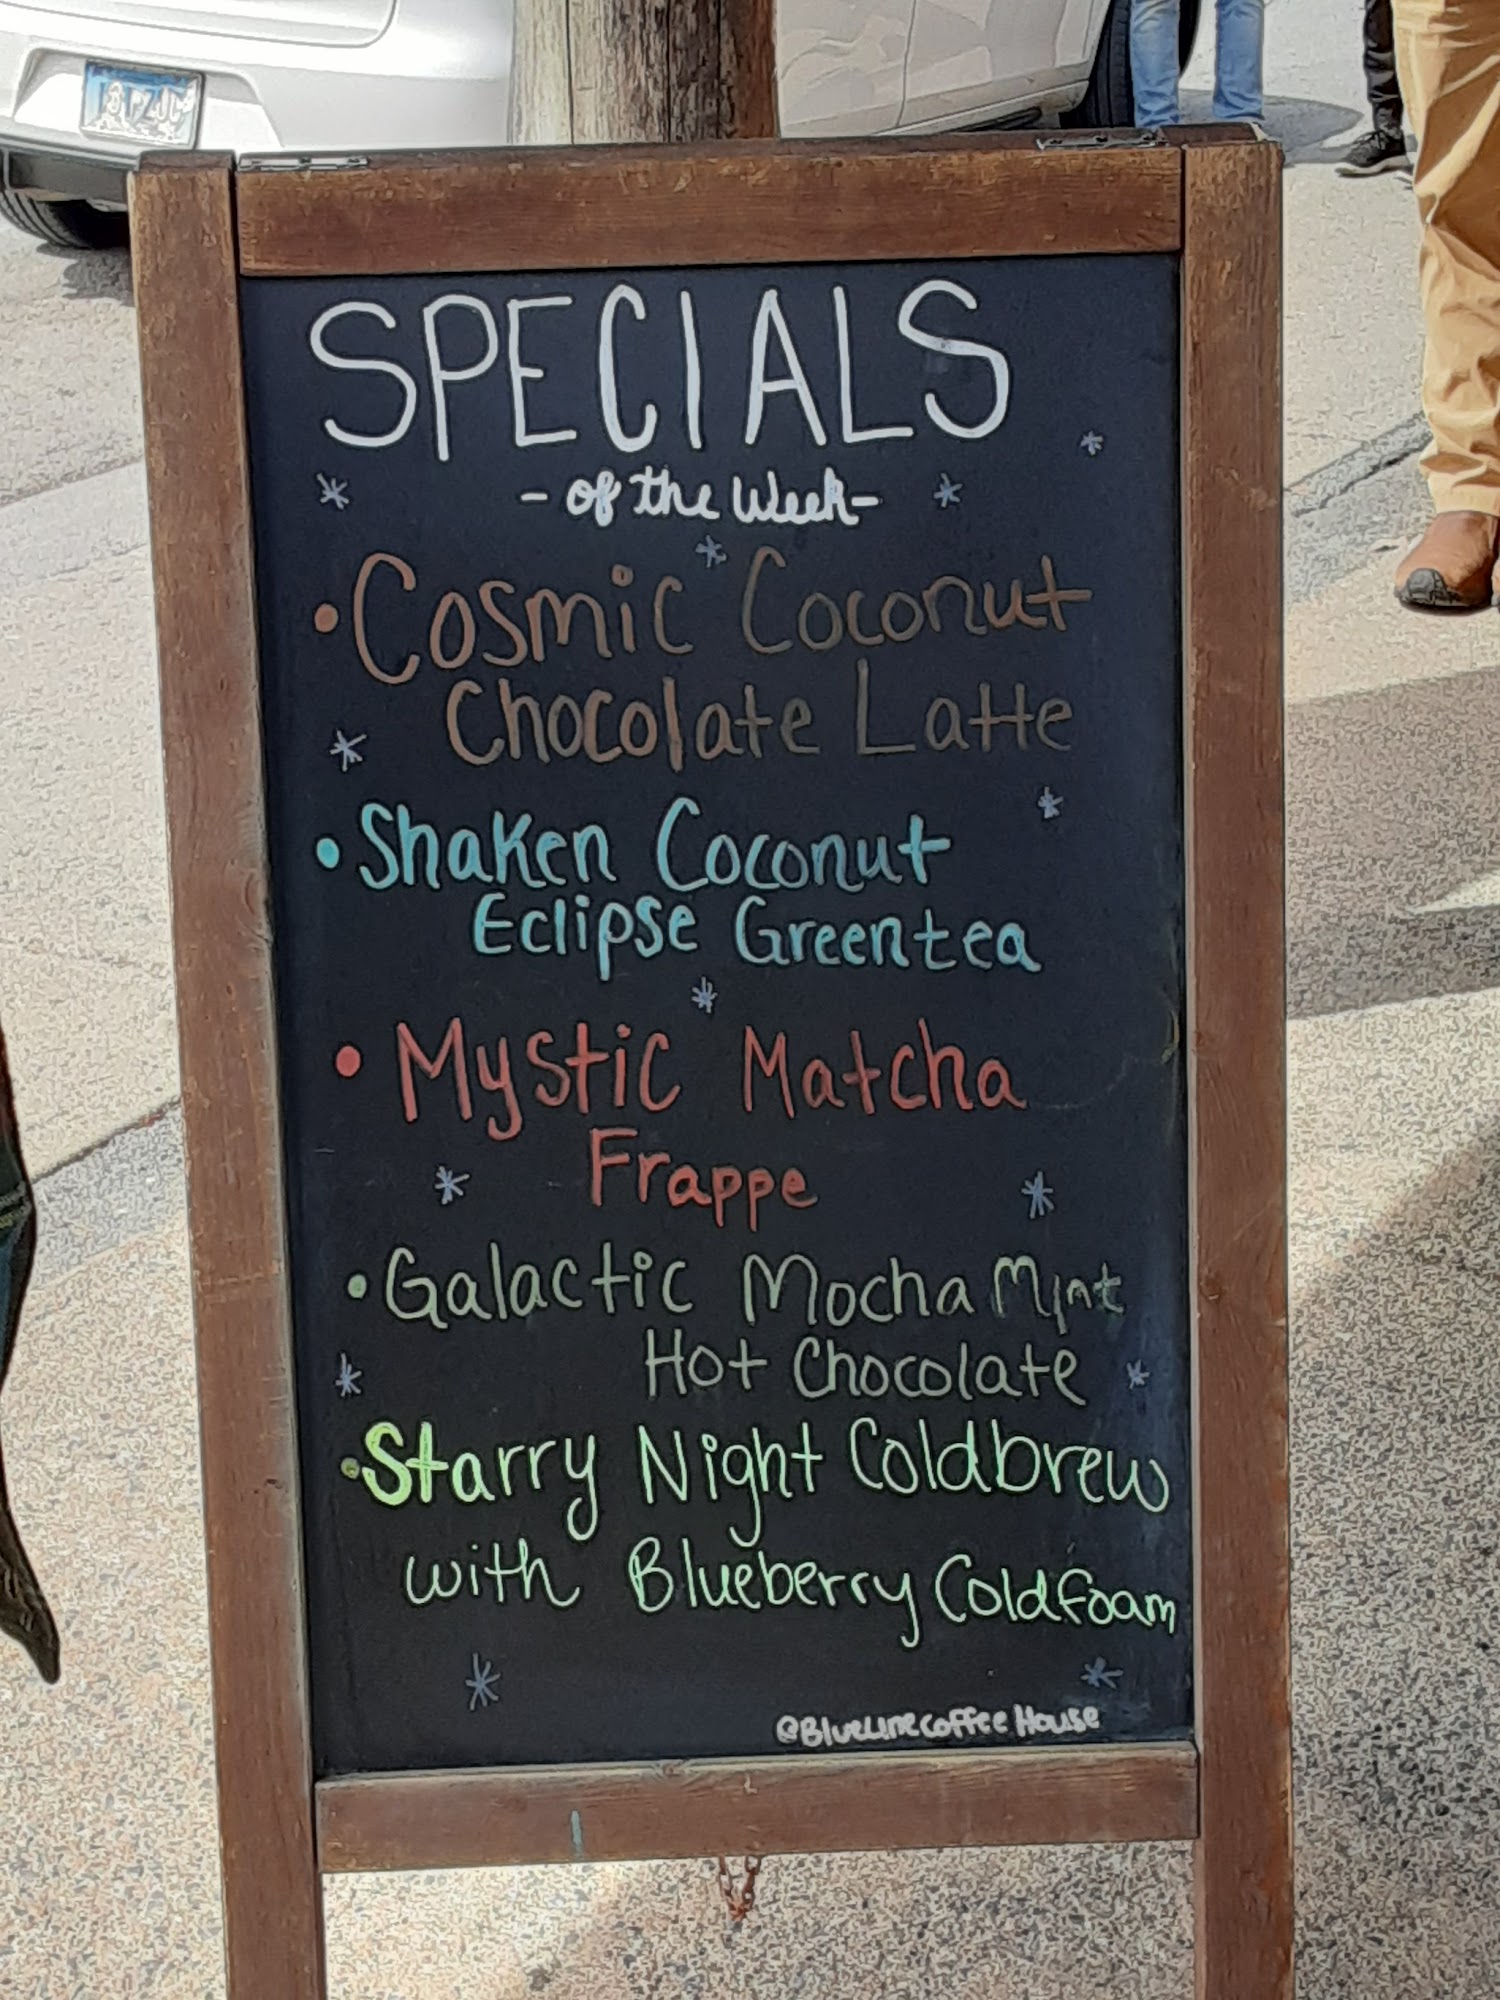 SPECIALS
- of the Week-
• Cosmic Coconut
Chocolate Latte
• Shaken Coconut
Eclipse Greentea
• Mystic Matcha
Frappe
• Galactic Mocha Mint
Hot Chocolate
• Starry Night Coldbrew
with Blueberry Coldfoam
@BlueLinecoffeeHouse